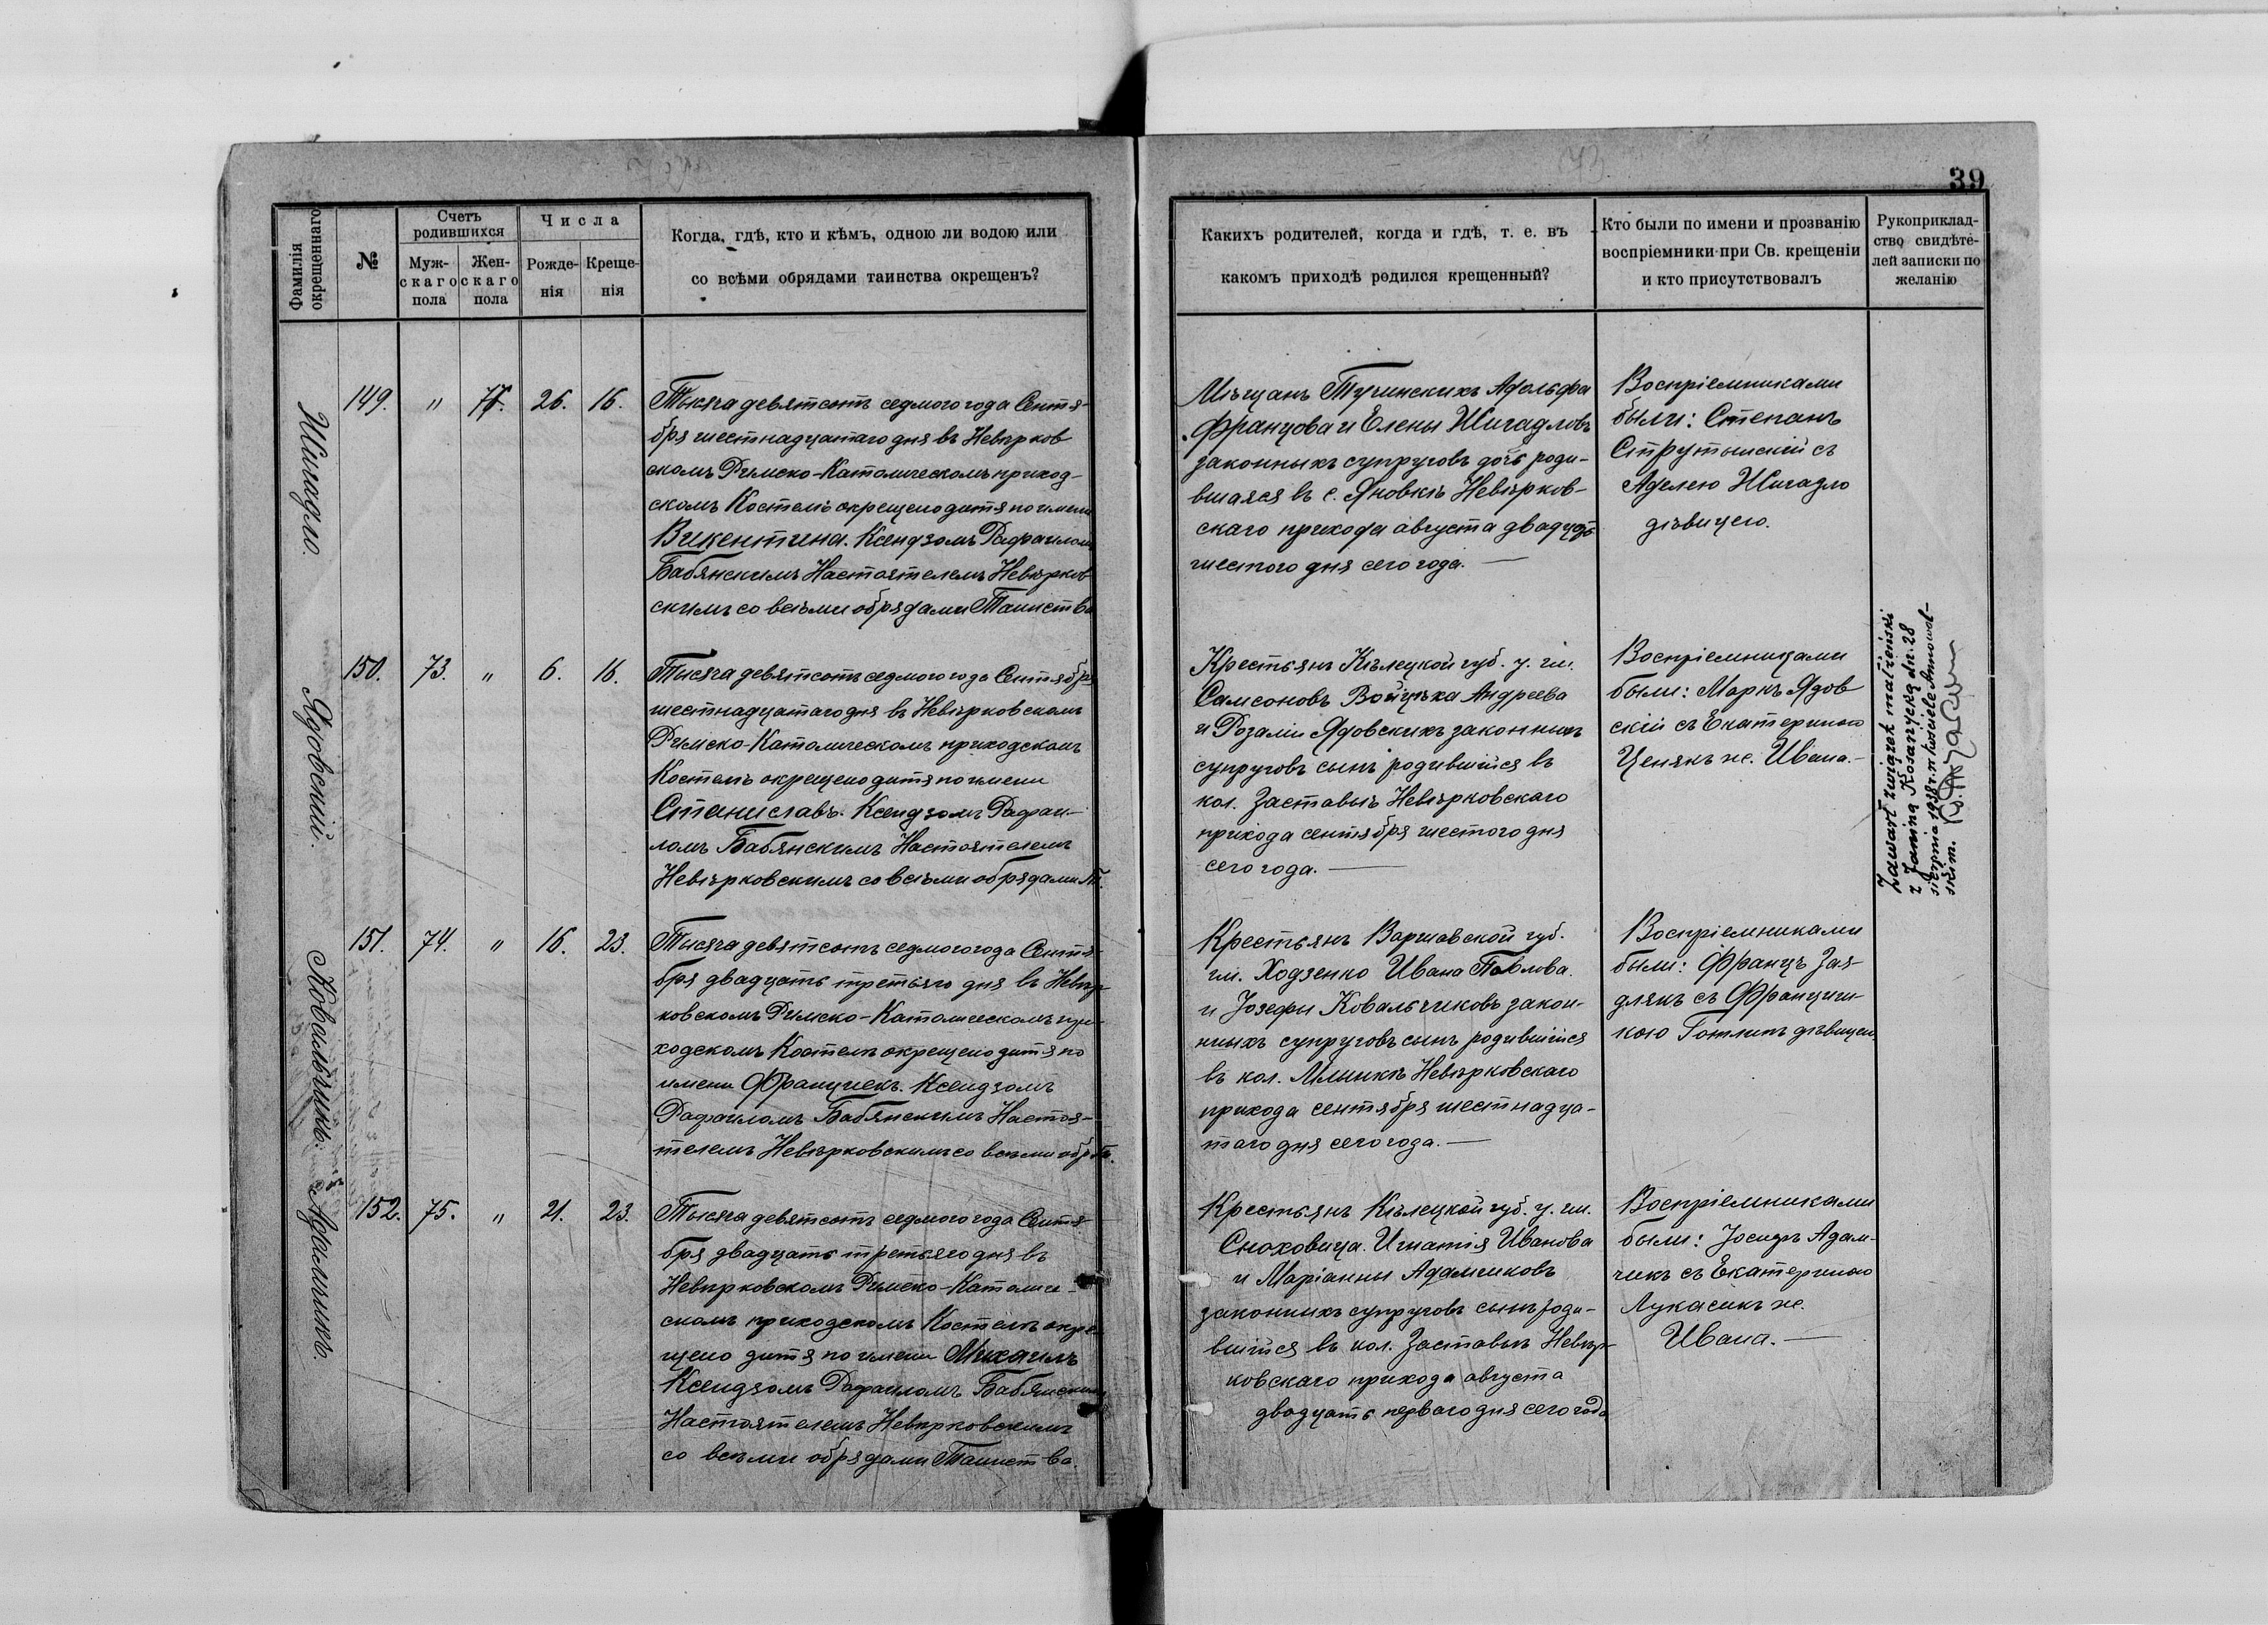 39
Фамилія
окрещеннаго
№
Счетъ
родившихся
Муж-
скаго
пола
Жен-
скаго
пола
Числа
Рожде-
нія
Креще-
нія
Когда, гдѣ, кто и кѣмъ, одною ли водою или
со всѣми обрядами таинства окрещенъ?
Какихъ родителей, когда и гдѣ, т. е. въ
какомъ приходѣ родился крещенный?
Кто были по имени и прозванію
воспріемники при Св. крещеніи
и кто присутствовалъ
Рукоприклад-
ство свидѣте-
лей записки по
желанію
Шигадло.
149. " 77. 26. 16.
Тысяча девятсотъ седмого года Сентя-
бря шестнадцатаго дня въ Невѣрков
скомъ Римско-Католическомъ приход-
скомъ Костелѣ окрещено дитя по имени
Викентина. Ксендзомъ Рафаиломъ
Бабянскимъ Настоятелемъ Невѣрков
скимъ со всѣми обрядами Таинства
Мѣщанъ Тучинскихъ Адольфа
Францова и Елены Шигадловъ
законныхъ супруговъ дочь роди-
вшаяся въ с. Яновкѣ Невѣрков-
скаго прихода августа двадцать
шестого дня сего года. —
Воспріемниками
были: Степанъ
Струтынскій съ
Аделею Шигадло
дѣвицею.
Ядовскій.
150. 73. " 6. 16.
Тысяча девятсотъ седмого года Сентября
шестнадцатаго дня въ Невѣрковскомъ
Римско-Католическомъ приходскомъ
Костелѣ окрещено дитя по имени
Станиславъ. Ксендзомъ Рафаи-
ломъ Бабянскимъ Настоятелемъ
Невѣрковскимъ со всѣми обрядами Т.
Крестьянъ Кѣлецкой губ. у. гм.
Самсоновъ Войцѣха Андреева
и Розаліи Ядовскихъ законныхъ
супруговъ сынъ родившійся въ
кол. Заставьѣ Невѣрковскаго
прихода сентября шестого дня
сего года. —
Воспріемницами
были: Маркъ Ядов
скій съ Екатериною
Ценякъ ж. Ивана. —
Zawarł związek małżeński
z Janiną Kosarzycką dn. 28
sierpnia 1938 r. w kościele Annowal-
skim.
Ковальчикъ.
151. 74. " 16. 23.
Тысяча девятсотъ седмого года Сентя-
бря двадцать третьяго дня въ Невѣр
ковскомъ Римско-Католическомъ при-
ходскомъ Костелѣ окрещено дитя по
имени Францишекъ. Ксендзомъ
Рафаиломъ Бабянскимъ Настоя-
телемъ Невѣрковскимъ со всѣми обр. Т.
Крестьянъ Варшавской губ.
гм. Ходзенко Ивана Павлова
и Іозефы Ковальчиковъ закон-
ныхъ супруговъ сынъ родившійся
въ кол. Млынкѣ Невѣрковскаго
прихода сентября шестнадца-
таго дня сего года. —
Воспріемниками
были: Францъ Зая-
длякъ съ Францишкою
кою Готлипъ дѣвицею.
Адамчикъ.
152. 75. " 21. 23.
Тысяча девятсотъ седмого года Сентя-
бря двадцать третьяго дня въ
Невѣрковскомъ Римско-Католиче-
скомъ приходскомъ Костелѣ окре-
щено дитя по имени Михаилъ
Ксендзомъ Рафаиломъ Бабянскимъ
Настоятелемъ Невѣрковскимъ
со всѣми обрядами Таинства.
Крестьянъ Кѣлецкой губ. у. гм.
Сноховица. Игнатія Иванова
и Маріанны Адамчиковъ
законныхъ супруговъ сынъ роди-
вшійся въ кол. Заставьѣ Невѣр-
ковскаго прихода августа
двадцать перваго дня сего года
Воспріемниками
были: Іосифъ Адам-
чикъ съ Екатериною
Лукасикъ ж.
Ивана. —